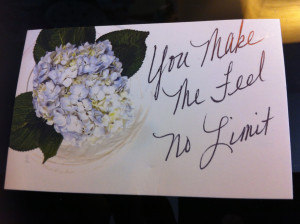 You Make
Me Feel
No Limit